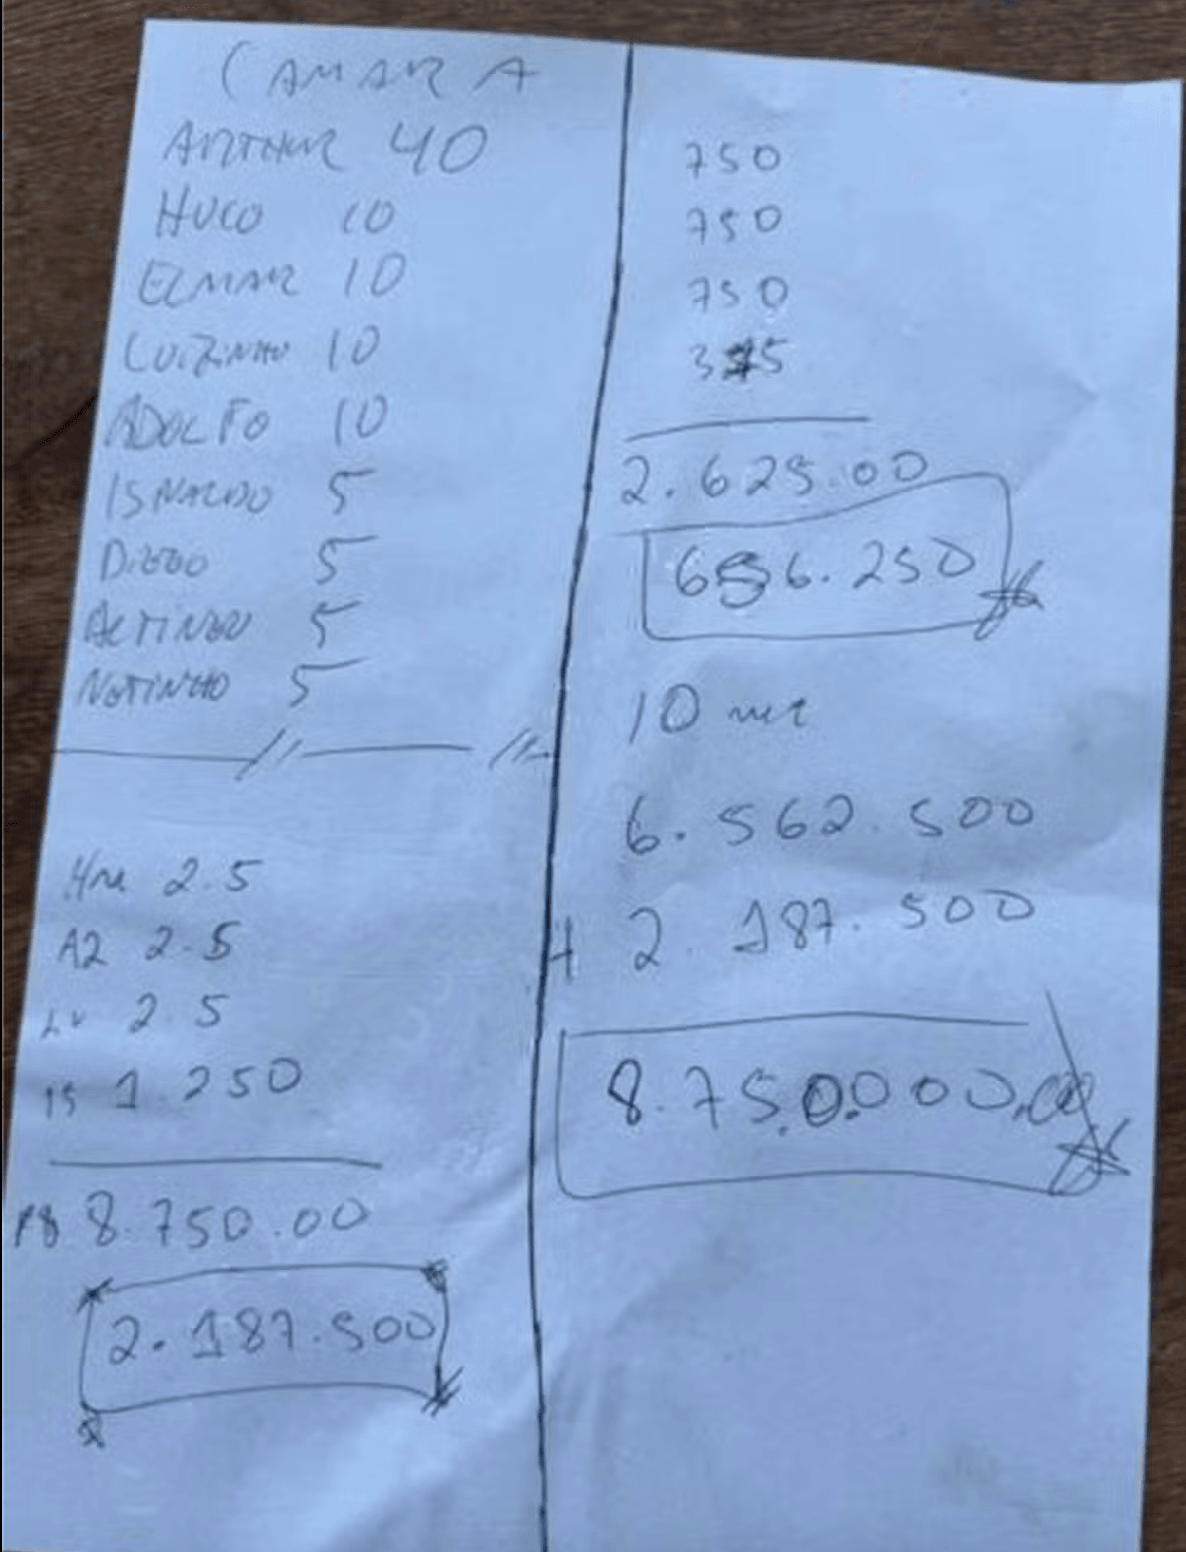 CAMARA
ARTHUR 40
HUGO 10
ELMAR 10
LUIZINHO 10
ADOLFO 10
ISNALDO 5
DIOGO 5
ALTINEU 5
NETINHO 5
2.5
A2 2.5
LU 2.5
IS 1.250
8.750.00
2.187.500
750
750
750
375
2.625.00
656.250
10
6.562.500
2.187.500
8.750.000,00